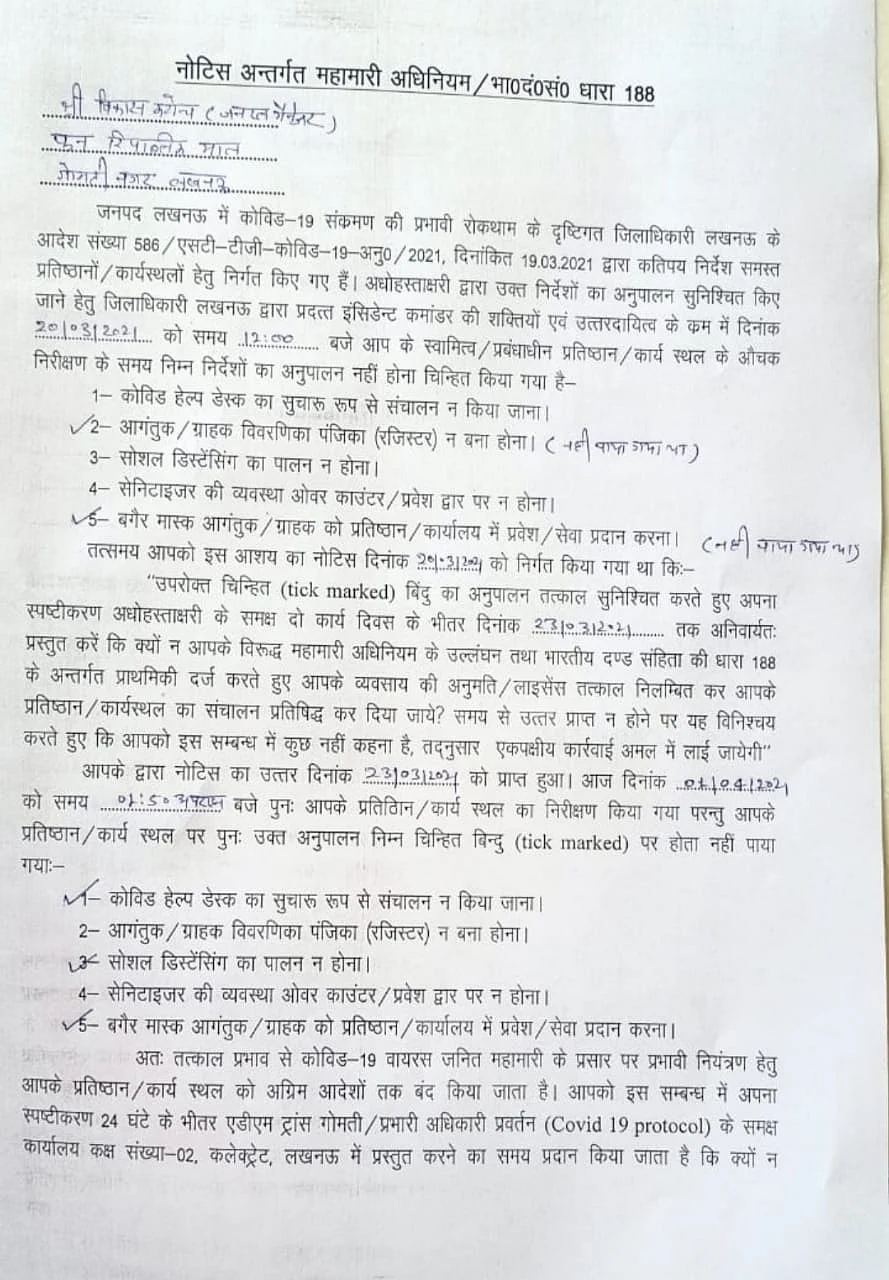 नोटिस अन्तर्गत महामारी अधिनियम/भा0दं0सं0 धारा 188
श्री विकास (जनरल मैनेजर)
फन रिपब्लिक माल
गोमती नगर लखनऊ
जनपद लखनऊ में कोविड–19 संकमण की प्रभावी रोकथाम के दृष्टिगत जिलाधिकारी लखनऊ के
आदेश संख्या 586/एसटी–टीजी–कोविड–19–अनु0/2021, दिनांकित 19.03.2021 द्वारा कतिपय निर्देश समस्त
प्रतिष्ठानों/कार्यस्थलों हेतु निर्गत किए गए हैं। अधोहस्ताक्षरी द्वारा उक्त निर्देशों का अनुपालन सुनिश्चित किए
जाने हेतु जिलाधिकारी लखनऊ द्वारा प्रदत्त इंसिडेन्ट कमांडर की शक्तियों एवं उत्तरदायित्व के कम में दिनांक
20/03/2021 को समय 12:00 बजे आप के स्वामित्व/प्रबंधाधीन प्रतिष्ठान/कार्य स्थल के औचक
निरीक्षण के समय निम्न निर्देशों का अनुपालन नहीं होना चिन्हित किया गया है–
1– कोविड हेल्प डेस्क का सुचारू रूप से संचालन न किया जाना।
✓2– आगंतुक/ग्राहक विवरणिका पंजिका (रजिस्टर) न बना होना। (नही पाया गया था)
3– सोशल डिस्टेंसिंग का पालन न होना।
4– सेनिटाइजर की व्यवस्था ओवर काउंटर/प्रवेश द्वार पर न होना।
✓5– बगैर मास्क आगंतुक/ग्राहक को प्रतिष्ठान/कार्यालय में प्रवेश/सेवा प्रदान करना। (नही पाया गया था)
तत्समय आपको इस आशय का नोटिस दिनांक 20.3.2021 को निर्गत किया गया था कि:–
“उपरोक्त चिन्हित (tick marked) बिंदु का अनुपालन तत्काल सुनिश्चित करते हुए अपना
स्पष्टीकरण अधोहस्ताक्षरी के समक्ष दो कार्य दिवस के भीतर दिनांक 23/03/2021 तक अनिवार्यतः
प्रस्तुत करें कि क्यों न आपके विरूद्ध महामारी अधिनियम के उल्लंघन तथा भारतीय दण्ड संहिता की धारा 188
के अन्तर्गत प्राथमिकी दर्ज करते हुए आपके व्यवसाय की अनुमति/लाइसेंस तत्काल निलम्बित कर आपके
प्रतिष्ठान/कार्यस्थल का संचालन प्रतिषिद्ध कर दिया जाये? समय से उत्तर प्राप्त न होने पर यह विनिश्चय
करते हुए कि आपको इस सम्बन्ध में कुछ नहीं कहना है, तद्नुसार एकपक्षीय कार्रवाई अमल में लाई जायेगी”
आपके द्वारा नोटिस का उत्तर दिनांक 23/03/2021 को प्राप्त हुआ। आज दिनांक 01/04/2021
को समय 01:50 अपराह्न बजे पुनः आपके प्रतिठिान/कार्य स्थल का निरीक्षण किया गया परन्तु आपके
प्रतिष्ठान/कार्य स्थल पर पुनः उक्त अनुपालन निम्न चिन्हित बिन्दु (tick marked) पर होता नहीं पाया
गयाः–
✓1– कोविड हेल्प डेस्क का सुचारू रूप से संचालन न किया जाना।
2– आगंतुक/ग्राहक विवरणिका पंजिका (रजिस्टर) न बना होना।
✓3– सोशल डिस्टेंसिंग का पालन न होना।
4– सेनिटाइजर की व्यवस्था ओवर काउंटर/प्रवेश द्वार पर न होना।
✓5– बगैर मास्क आगंतुक/ग्राहक को प्रतिष्ठान/कार्यालय में प्रवेश/सेवा प्रदान करना।
अतः तत्काल प्रभाव से कोविड–19 वायरस जनित महामारी के प्रसार पर प्रभावी नियंत्रण हेतु
आपके प्रतिष्ठान/कार्य स्थल को अग्रिम आदेशों तक बंद किया जाता है। आपको इस सम्बन्ध में अपना
स्पष्टीकरण 24 घंटे के भीतर एडीएम ट्रांस गोमती/प्रभारी अधिकारी प्रवर्तन (Covid 19 protocol) के समक्ष
कार्यालय कक्ष संख्या–02, कलेक्ट्रेट, लखनऊ में प्रस्तुत करने का समय प्रदान किया जाता है कि क्यों न